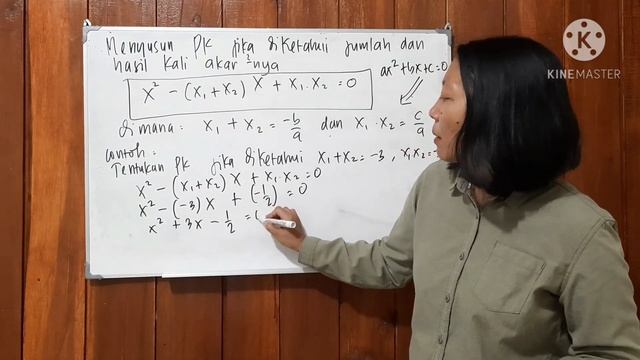 Menyusun PK jika diketahui jumlah dan
hasil kali akar²nya
ax² + bx + c = 0
x² - (x₁ + x₂) x + x₁ . x₂ = 0
dimana : x₁ + x₂ = -b/a dan x₁ . x₂ = c/a
Contoh :
Tentukan PK jika diketahui x₁ + x₂ = -3 , x₁x₂ =
x² - (x₁ + x₂) x + x₁ . x₂ = 0
x² - (-3) x + (-1/2) = 0
x² + 3x - 1/2 =
K
KINEMASTER